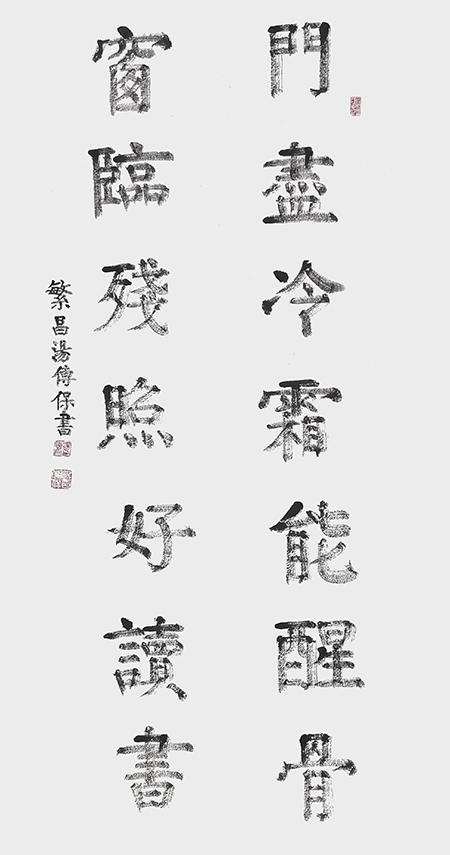 門盡冷霜能醒骨
窗臨殘照好讀書
繁昌湯傳保書